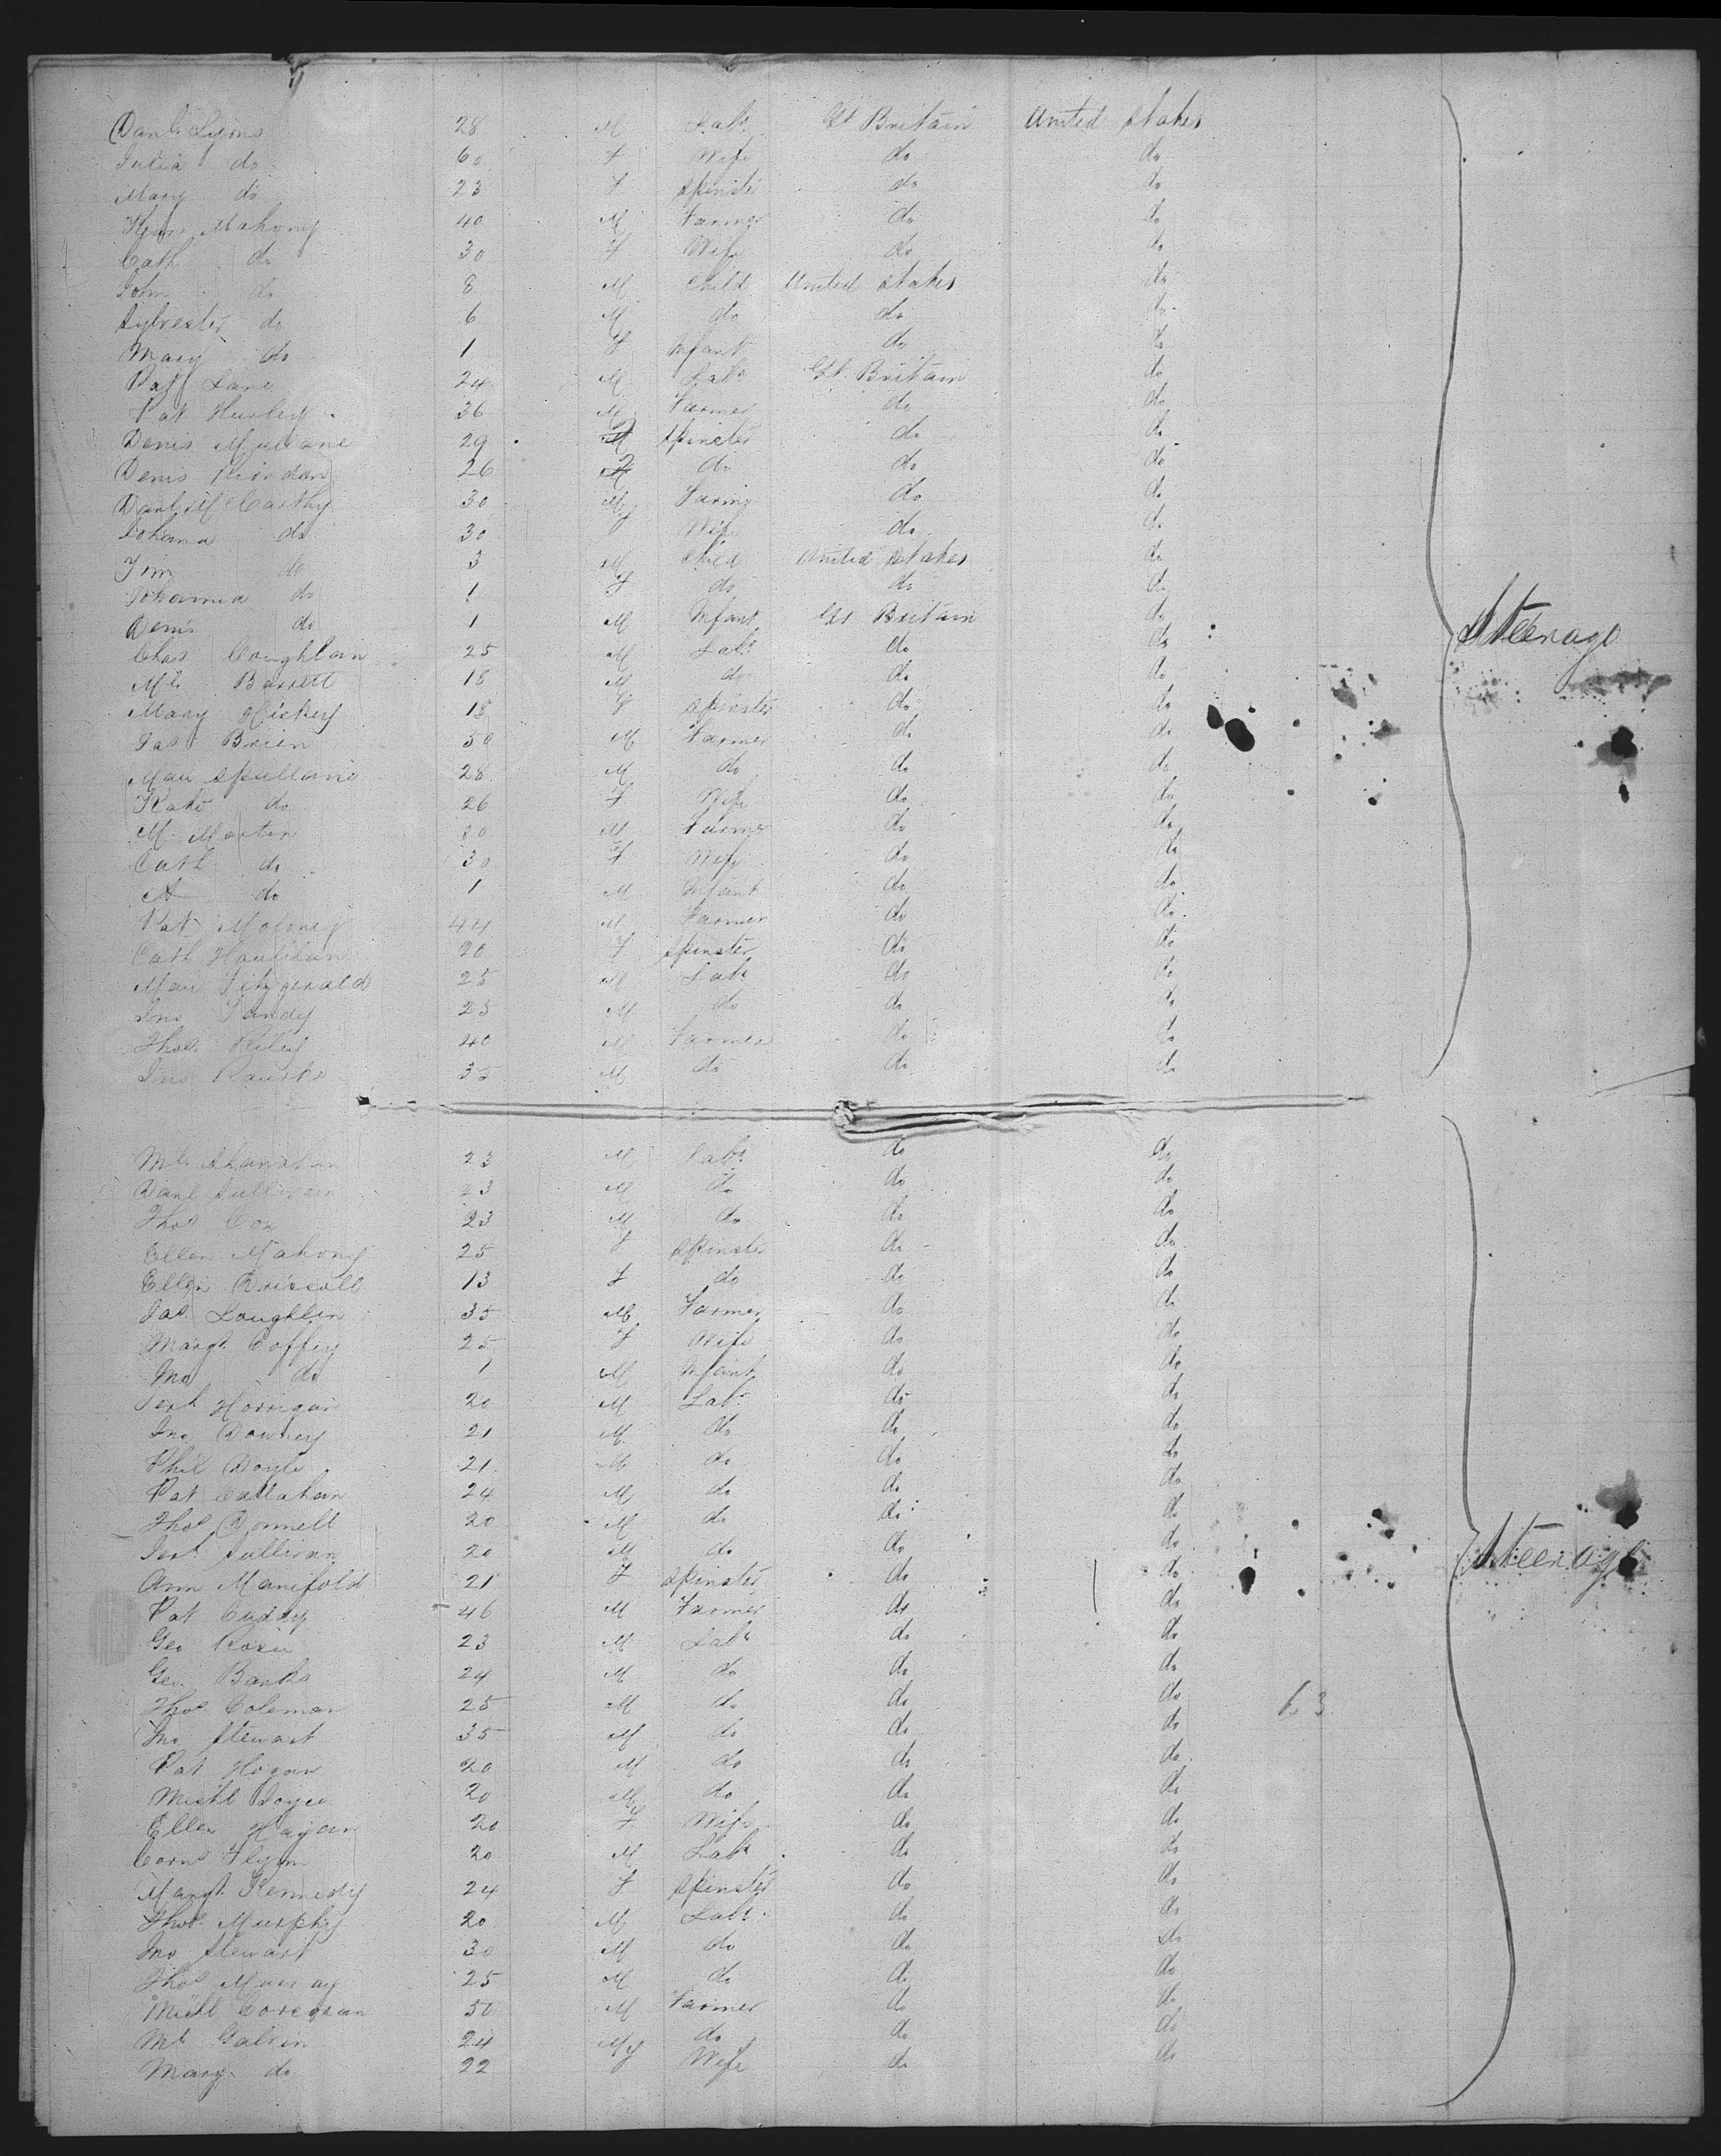 Danl. Lyons 28 M Labr. Gt. Britain United States
Julia do 60 F Wife do do
Mary do 23 F Spinster do do
Mahony 40 M Farmer do do
Cath do 30 F Wife do do
John do 8 M Child United States do
Sylvester do 6 M do do do
Mary do 1 F Infant do do
Lane 24 M Labr Gt. Britain do
Pat Hurley 36 M Farmer do do
Denis Mullane 29 Spinster do do
Denis Riordan 26 do do do
Danl McCarthy 30 M Farmer do do
Johanna do 30 F Wife do do
Tim do 3 M Child United States do
Johanna do 1 F do do do
Denis do 1 M Infant Gt Britain do
Chas Coughlain 25 M Labr do do
Steerage
Ml. Barrett 18 M do do do
Mary Hickey 18 F Spinster do do
Jas Brien 50 M Farmer do do
Mau Spullane 28 M do do do
Kate do 26 F Wife do do
M. Martin 30 M Farmer do do
Cath do 30 F Wife do do
A do 1 M Infant do do
Pat Moloney 44 M Farmer do do
Cath 20 F Spinster do do
Mau Fitzgerald 25 M Labr do do
Jno 25 M do do do
Thos. Riley 40 M Farmer do do
Jno Rourke 35 M do do do
Ml. Shanahan 23 M Labr. do do
Danl Sullivan 23 M do do do
Thos Cox 23 M do do do
Ellen Mahony 25 F Spinster do do
Ellen Driscoll 13 F do do do
Jas. Loughlin 35 M Farmer do do
Margt. Coffey 25 F Wife do do
Jno do 1 M Infant do do
Jerh Horrigan 20 M Labr. do do
Jno Downey 21 M do do do
Phil Doyle 21 M do do do
Pat Callahan 24 M do do do
Thos Donnell 20 M do do do
Jerh. Sullivan 20 M do do do
Steerage
Ann Manifold 21 F Spinster do do
Pat Cuddy 46 M Farmer do do
Geo 23 M Labr do do
Geo. Banks 24 M do do do
Thos Coleman 25 M do do do
63
Jno Stewart 35 M do do do
Pat Hogan 20 M do do do
Michl Joyce 20 M do do do
Ellen Hagan 20 F Wife do do
Corns Flynn 20 M Labr do do
Margt. Kennedy 24 F Spinster do do
Thos. Murphy 20 M Labr. do do
Jno Stewart 30 M do do do
Thos Murray 25 M do do do
Michl Corcoran 50 M Farmer do do
Ml. Galvin 24 M do do do
Mary do 22 F Wife do do